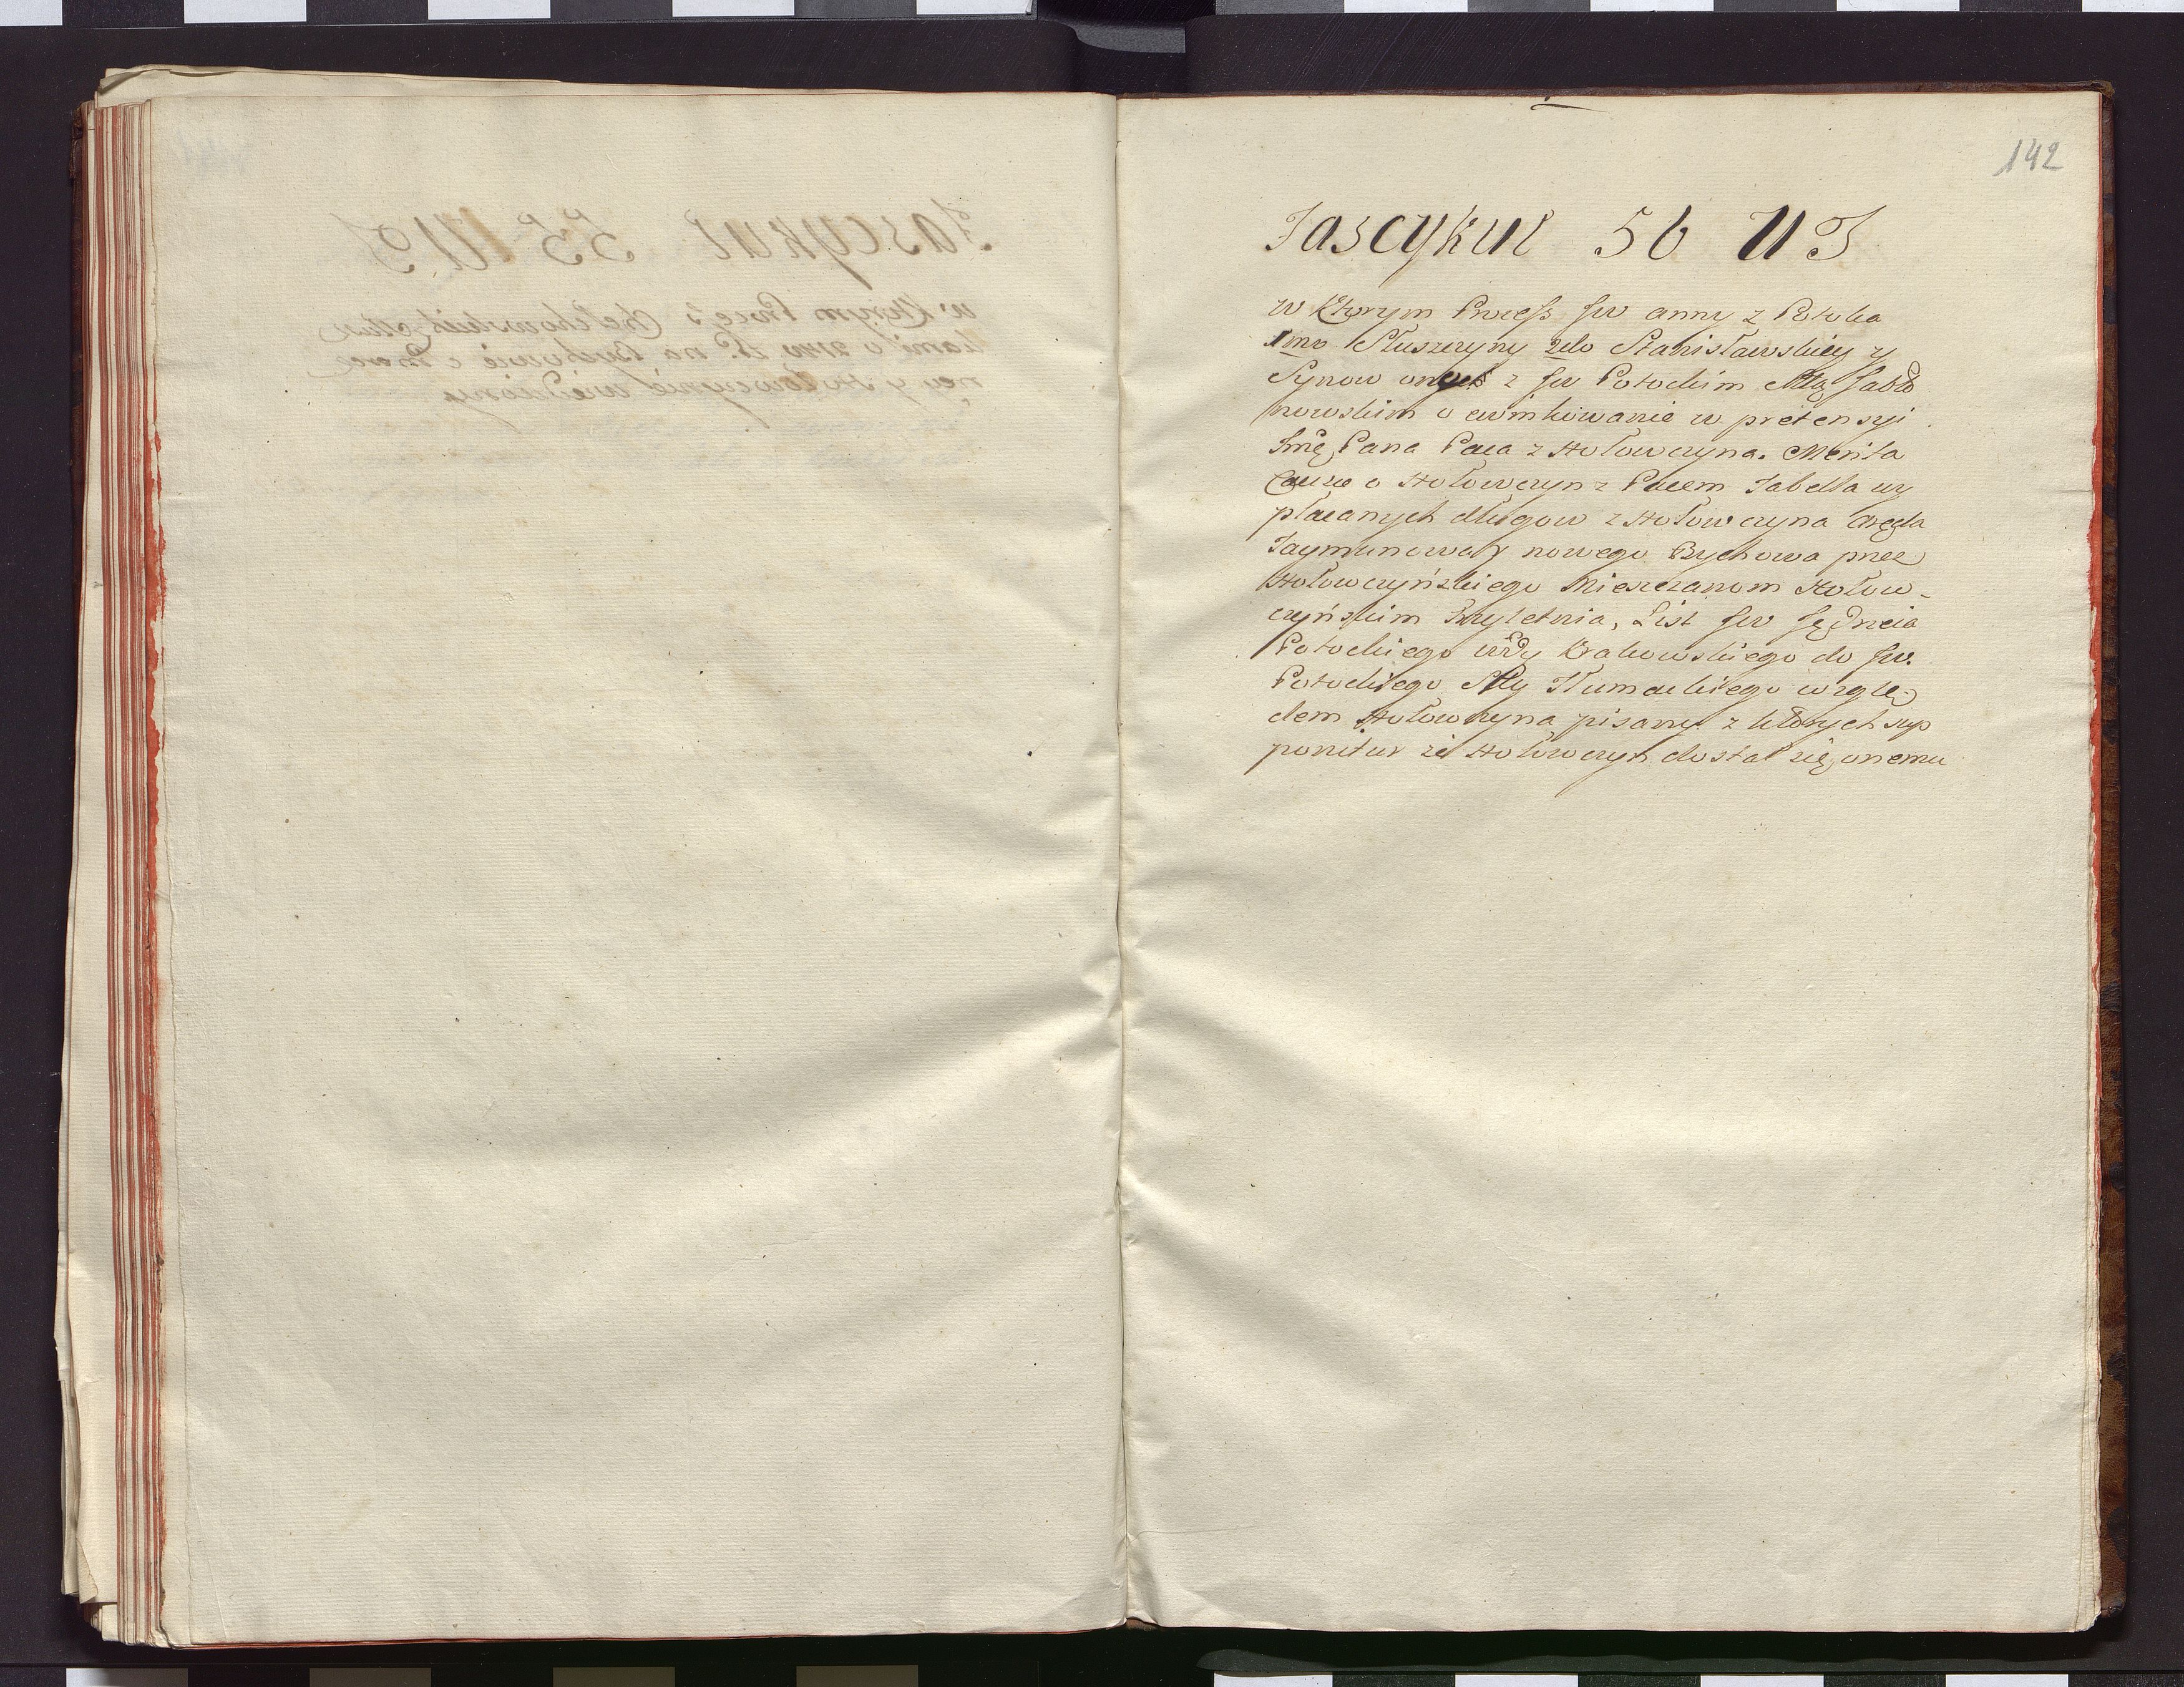 142
Fascykuł 56 U J
w Ktorym Process Jw anny z Potoka
1mo Słuszczyny 2do Stanisławskiey y
Synow onych z Jw Potockim Stą Jabło
nowskim o ewinkowanie w pretensyi
Jmę Pana Paca z Hołowczyna. Merita
Causae o Hołowczyn z Pacem Tabella wy
płacanych długow z Hołowczyna Aręda
nowego Bychowa przez
Hołowczyńskiego Mieszczanom Hołow-
czyńskim trzyletnia, List Jw Jędrzeia
Potockiego Wdy Krakowskiego do Jw.
Potockiego Sty Tłumackiego wzglę-
dem Hołowczyna pisany z ktorych sup
ponitur że Hołowczyn dostał się onemu